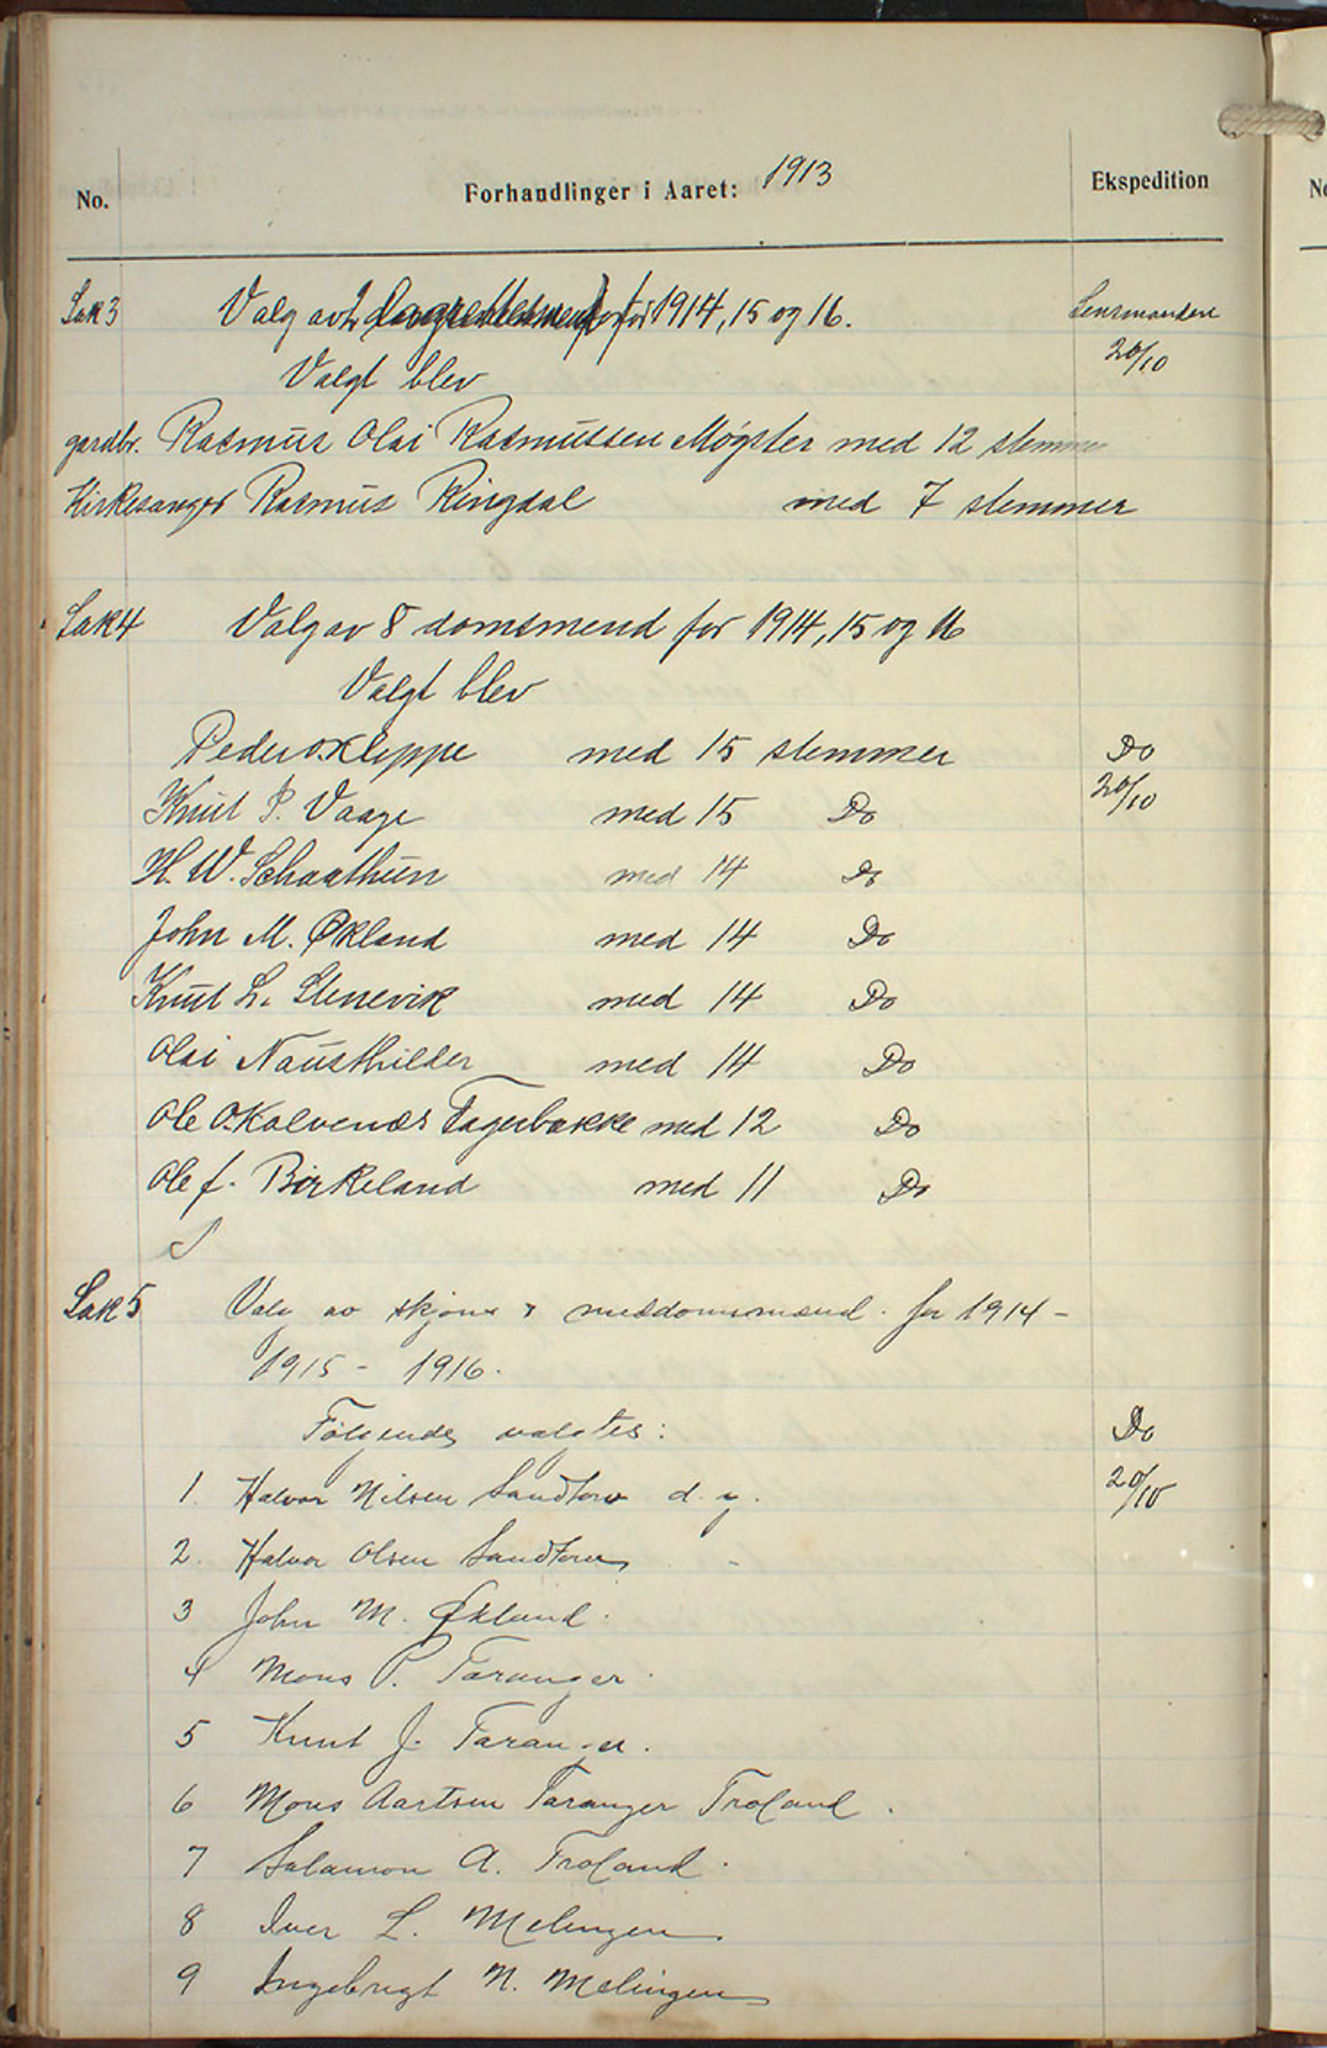 No. Forhandlinger i Aaret: 1913 Ekspedition
No
Sak 3 Valg av 2 lagrettesmend for 1914, 15 og 16. Lensmanden
Valgt blev 20/10
gardbr. Rasmus Olai Rasmussen Møgster med 12 stemmer
Kirkesanger Rasmus Ringdal med 7 stemmer
Sak 4 Valg av 8 domsmend for 1914, 15 og 16
Valgt blev
Peder O. Kleppe med 15 stemmer Do
Knut P. Vaage med 15 Do 20/10
H. W. Schaathun med 14 Do
John M. Økland med 14 Do
Knut L. Stenevik med 14 Do
Olai Nausthilder med 14 Do
Ole O. Kalvenæs Fagerbakke med 12 Do
Ole J. Birkeland med 11 Do
Sak 5 Valg av skjøns meddomsmænd. for 1914 -
1915 - 1916.
Følgende valgtes: Do
1. Halvor Nilsen Sandtorv d. y. 20/10
2. Halvor Olsen Sandtorv -
3 John M. Økland.
4 Mons P. Taranger.
5 Knut J. Taranger.
6 Mons Aartsen Taranger Troland.
7 Salamon A. Troland.
8 Iver L. Melingen
9 Ingebrigt N. Melingen